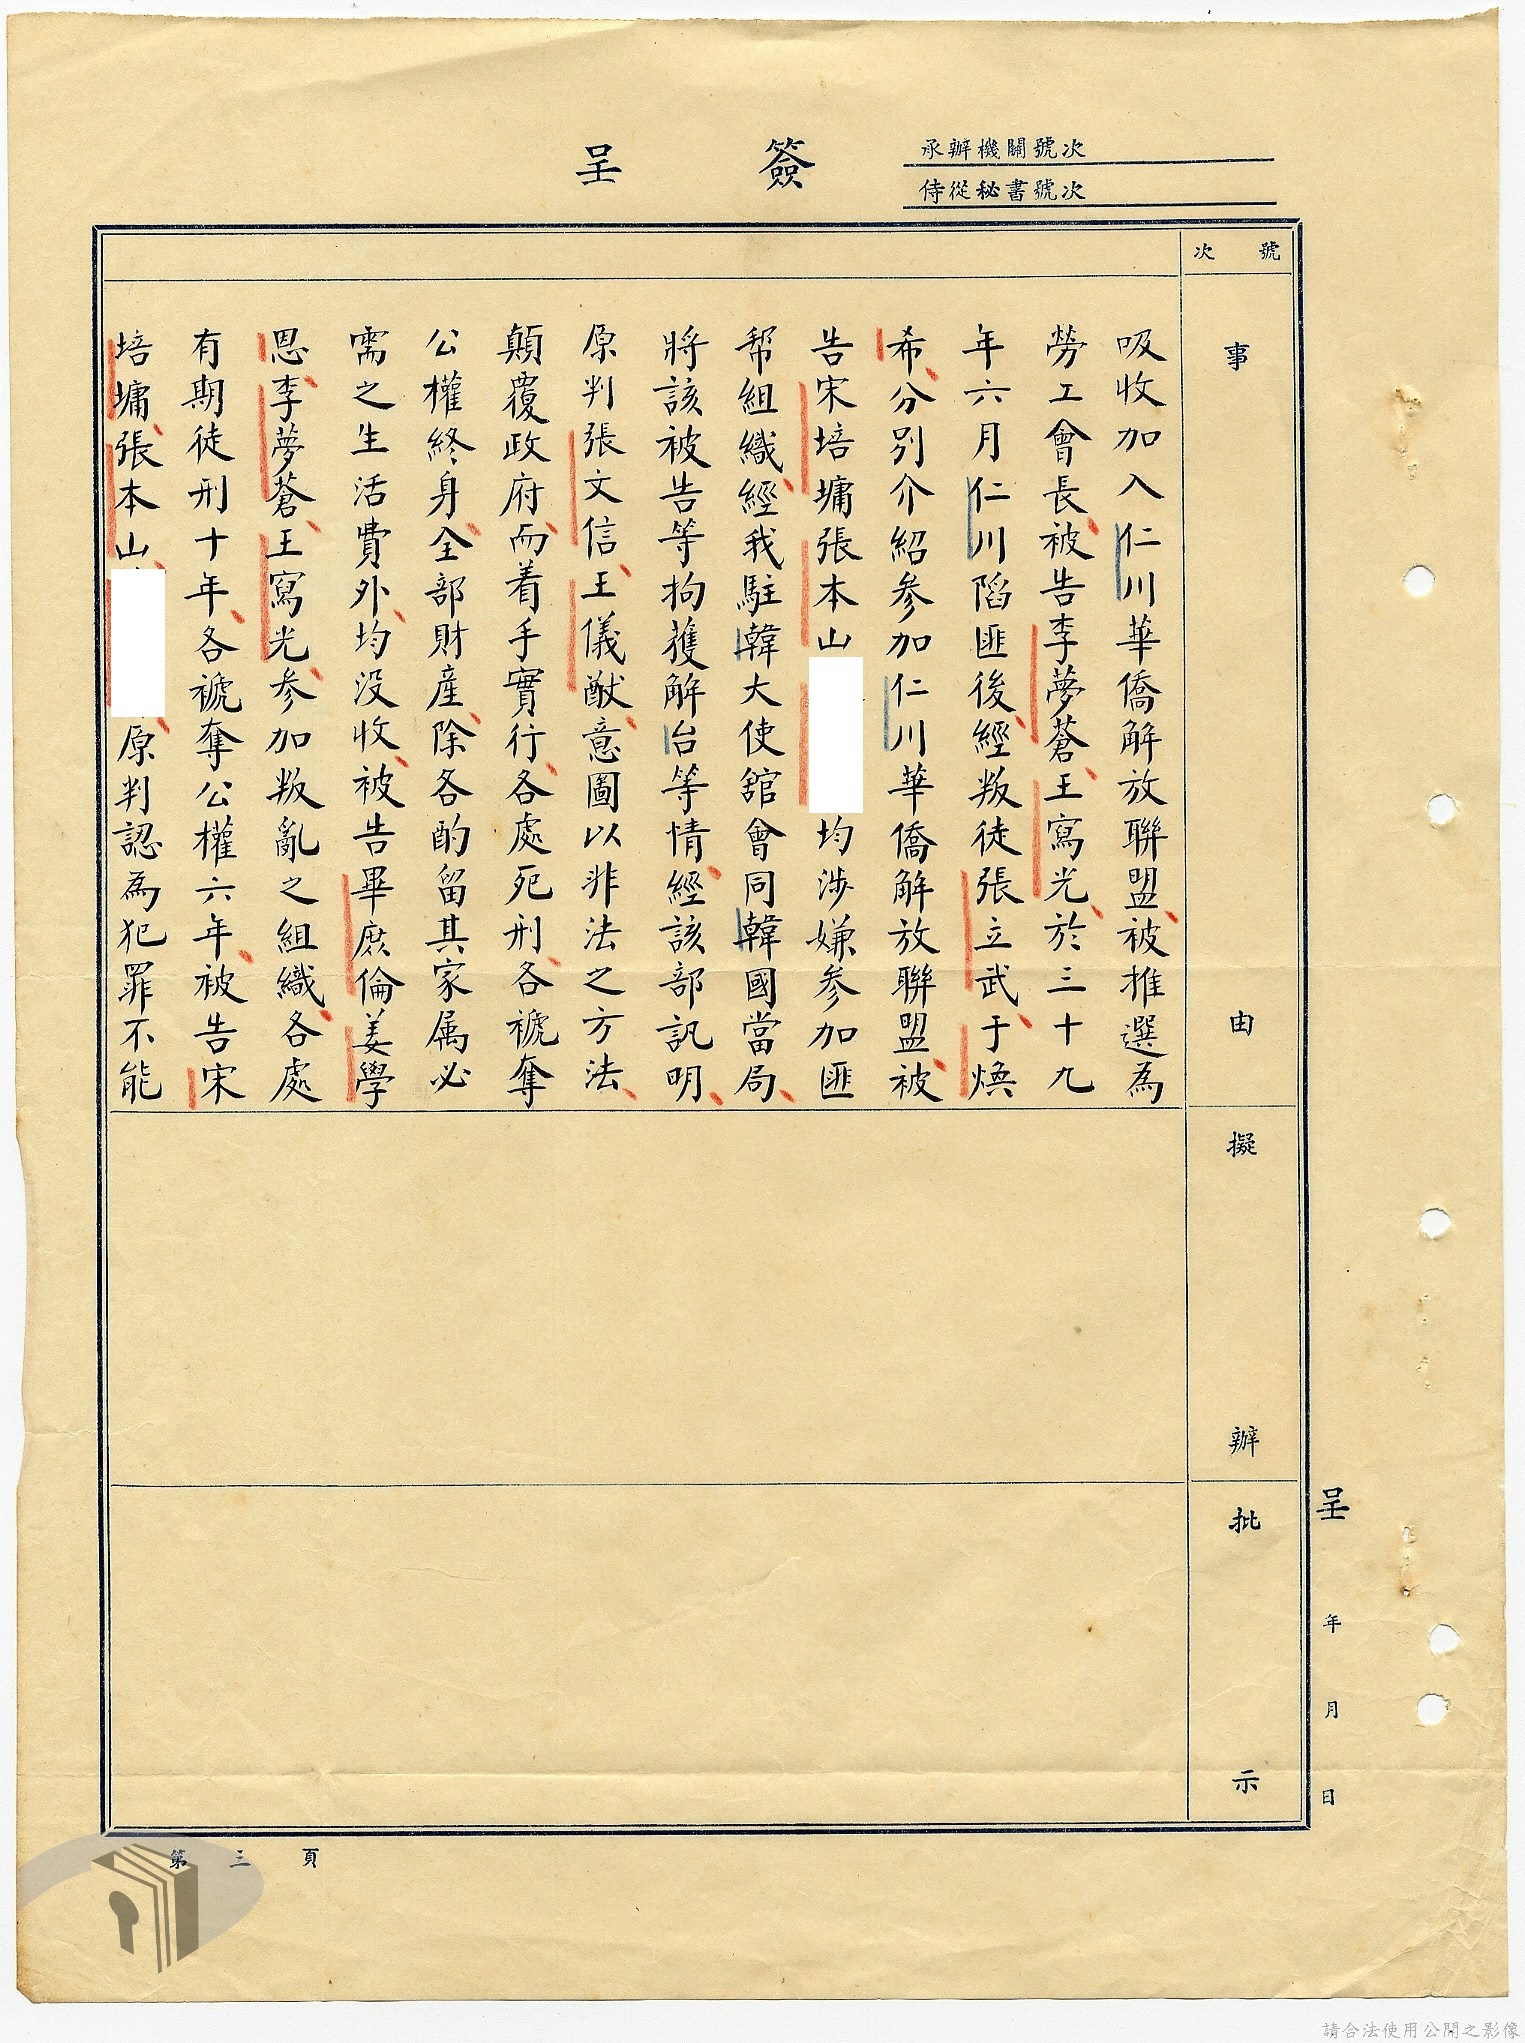 簽呈
承辦機關號次
侍從秘書號次
號次
事由
吸收加入仁川華僑解放聯盟被推選為
勞工會長被告李夢蒼王寫光於三十九
年六月仁川陷匪後經叛徒張立武于煥
希分別介紹參加仁川華僑解放聯盟被
告宋培墉張本山
均涉嫌參加匪
幫組織經我駐韓大使舘會同韓國當局
將該被告等拘獲解台等情經該部訊明
原判張文信王儀猷意圖以非法之方法
顛覆政府而着手實行各處死刑各褫奪
公權終身全部財產除各酌留其家属必
需之生活費外均没收被告畢庶倫姜學
恩李夢蒼王寫光参加叛亂之組織各處
有期徒刑十年各褫奪公權六年被告宋
培墉張本山
原判認為犯罪不能
擬辦
批示
呈
年
月
日
第三頁
請合法使用公開之影像